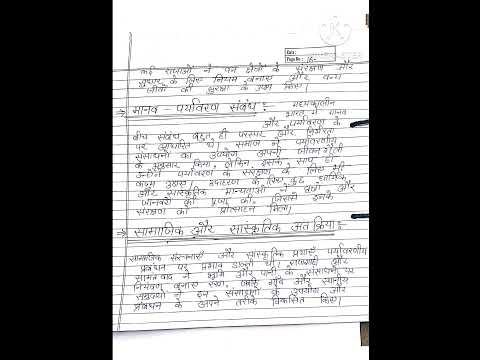 Date:
Page No: 16
कई राजाओं ने वन क्षेत्रों के संरक्षण और
सुधार के लिए नियम बनाए और वन्य
जीवों की सुरक्षा के उपाय किए।
⇒ मानव - पर्यावरण संबंध :- मध्यकालीन
भारत में मानव
और पर्यावरण के
बीच संबंध बहुत ही परस्पर और निर्भरता
पर आधारित थे। समाज ने पर्यावरणीय
संसाधनों का उपयोग अपनी जीवन शैली
के अनुसार किया, लेकिन इसके साथ ही
उन्होंने पर्यावरण के संरक्षण के लिए भी
कदम उठाए। उदाहरण के लिए कुछ धार्मिक
और सांस्कृतिक मान्यताओं ने वृक्षों और
जानवरों की पूजा की, जिससे इनके
संरक्षण को प्रोत्साहन मिला।
⇒ सामाजिक और सांस्कृतिक अंतःक्रिया:-
सामाजिक संरचनाओं और सांस्कृतिक प्रथाएँ पर्यावरणीय
प्रबंधन पर प्रभाव डालती थी। राजशाही और
सामंतवाद ने भूमि और पानी के संसाधनों पर
नियंत्रण बनाए रखा, जबकि गाँव और स्थानीय
समुदायों ने इन संसाधनों के उपयोग और
प्रबंधन के अपने तरीके विकसित किए।